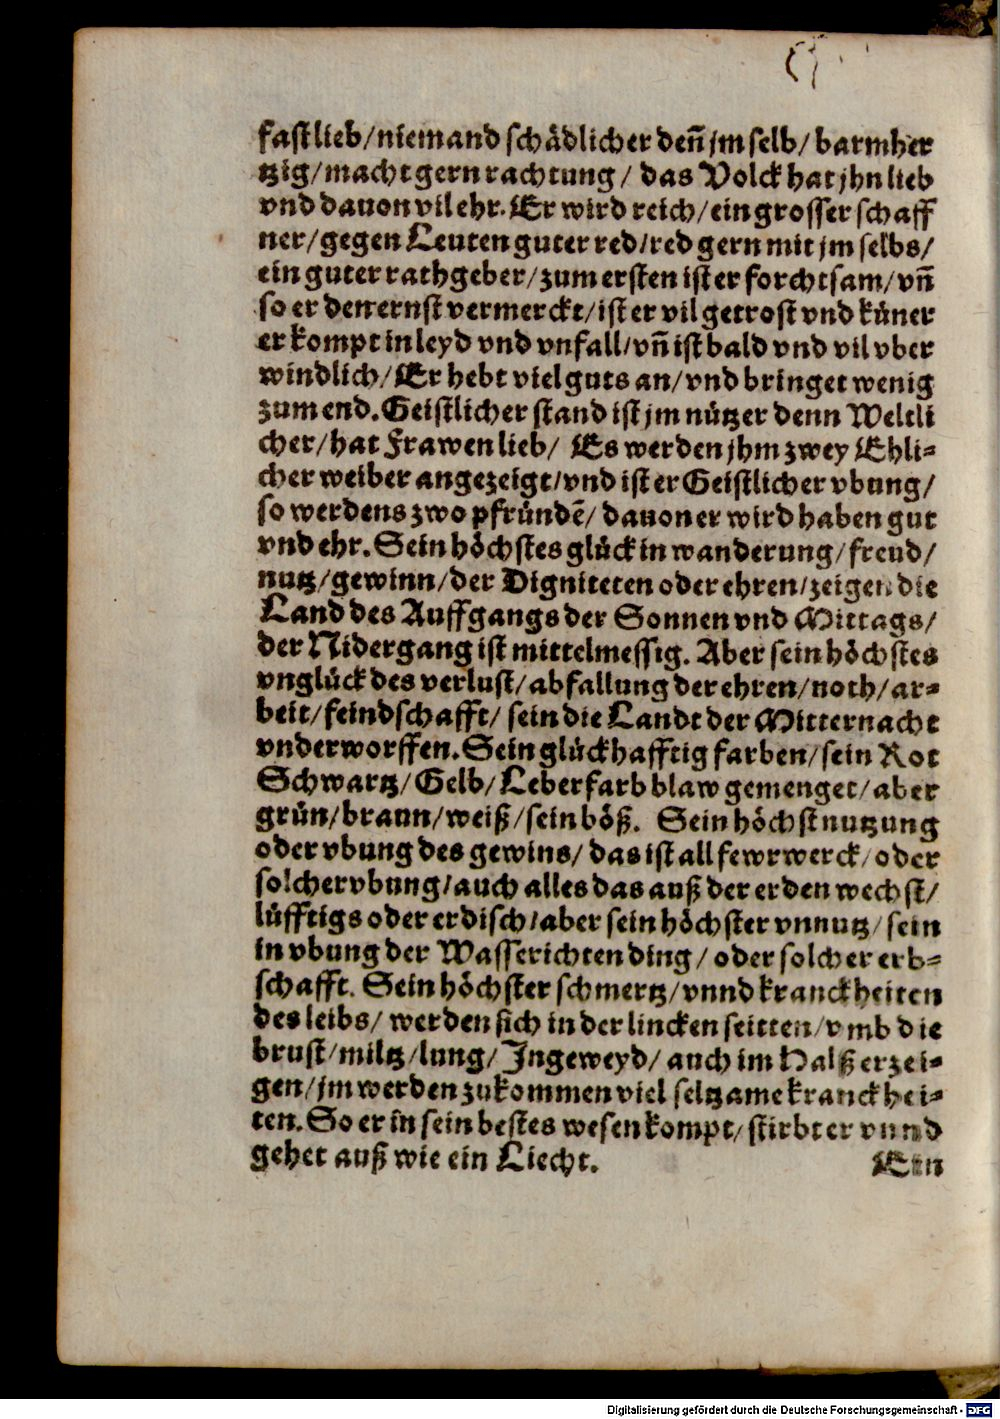 fast lieb/niemand schädlicher deñ jm selb/ barmher
tzig/macht gern rachtung/ das Volck hat jhn lieb
vnd dauon vil ehr. Er wird reich/ein grosser schaff
ner/gegen Leuten guter red/red gern mit jm selbs/
ein guter rathgeber/zum ersten ist er forchtsam/vñ
so er den ernst vermerckt/ist er vil getrost vnd küner
er kompt in leyd vnd vnfall/vñ ist bald vnd vil vber
windlich/Er hebt viel guts an/vnd bringet wenig
zum end. Geistlicher stand ist jm nützer denn Weltli
cher/hat Frawen lieb/ Es werden jhm zwey Ehli-
cher weiber angezeigt/vnd ist er Geistlicher vbung/
so werdens zwo pfründē/ dauon er wird haben gut
vnd ehr. Sein höchstes glück in wanderung/freud/
nutz/gewinn/der Digniteten oder ehren/zeigen die
Land des Auffgangs der Sonnen vnd Mittags/
der Nidergang ist mittelmessig. Aber sein höchstes
vnglück des verlust/abfallung der ehren/noth/ar-
beit/feindschafft/ sein die Landt der Mitternacht
vnderworffen. Sein glückhafftig farben/sein Rot
Schwartz/Gelb/Leberfarb blaw gemenget/aber
grün/braun/weiß/sein böß. Sein höchst nutzung
oder vbung des gewins/ das ist all fewrwerck/oder
solcher vbung/auch alles das auß der erden wechst/
lüfftigs oder erdisch/aber sein höchster vnnutz/sein
in vbung der Wasserichten ding/oder solcher erb-
schafft. Sein höchster schmertz/vnnd kranckheiten
des leibs/ werden sich in der lincken seitten/vmb die
brust/miltz/lung/Jngeweyd/auch im Halß erzei-
gen/jm werden zukommen viel seltzame kranckhei-
ten. So er in sein bestes wesen kompt/stirbt er vnnd
gehet auß wie ein Liecht.
Ein
Digitalisierung gefördert durch die Deutsche Forschungsgemeinschaft - DFG